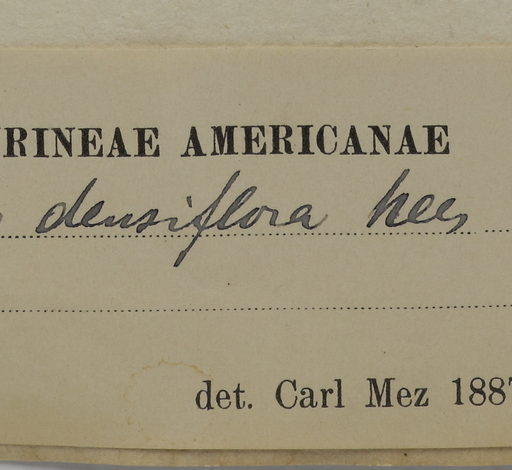 RINEAE AMERICANAE
densiflora Nees
det. Carl Mez 1887